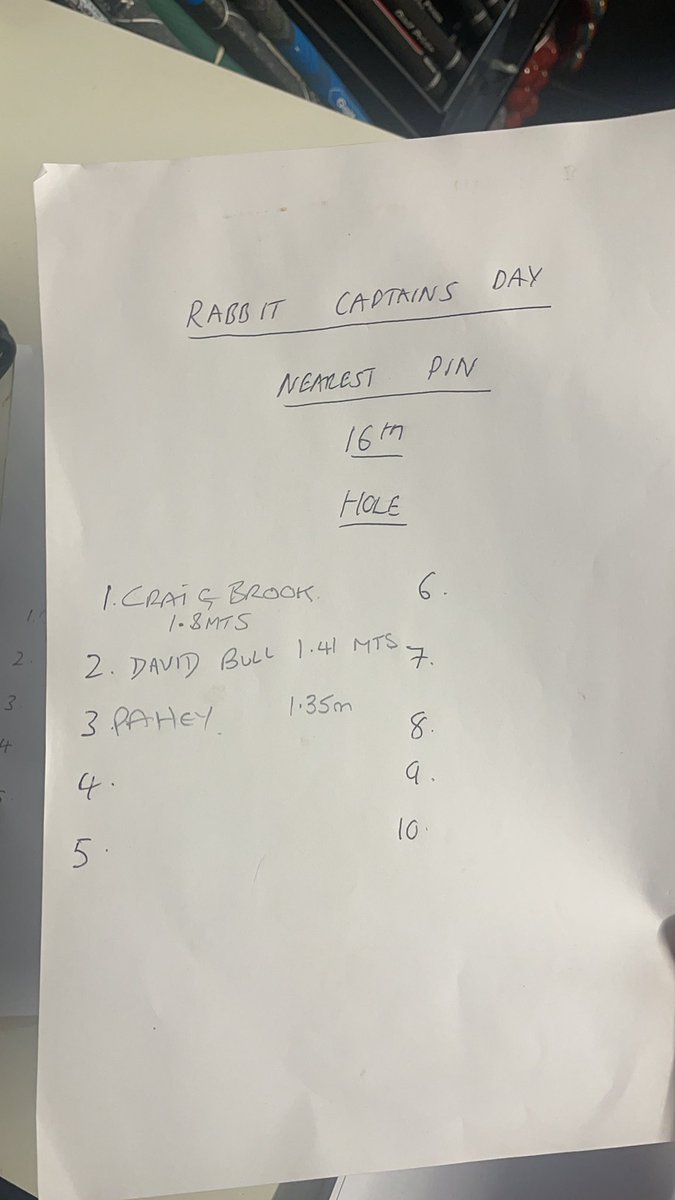 RABBIT CAPTAINS DAY
NEAREST PIN
16TH
HOLE
1. CRAIG BROOK.
1.8MTS
2. DAVID BULL 1.41 MTS
3 PAHEY. 1.35m
4.
5.
6.
7.
8.
9.
10.
1.
2.
3
4